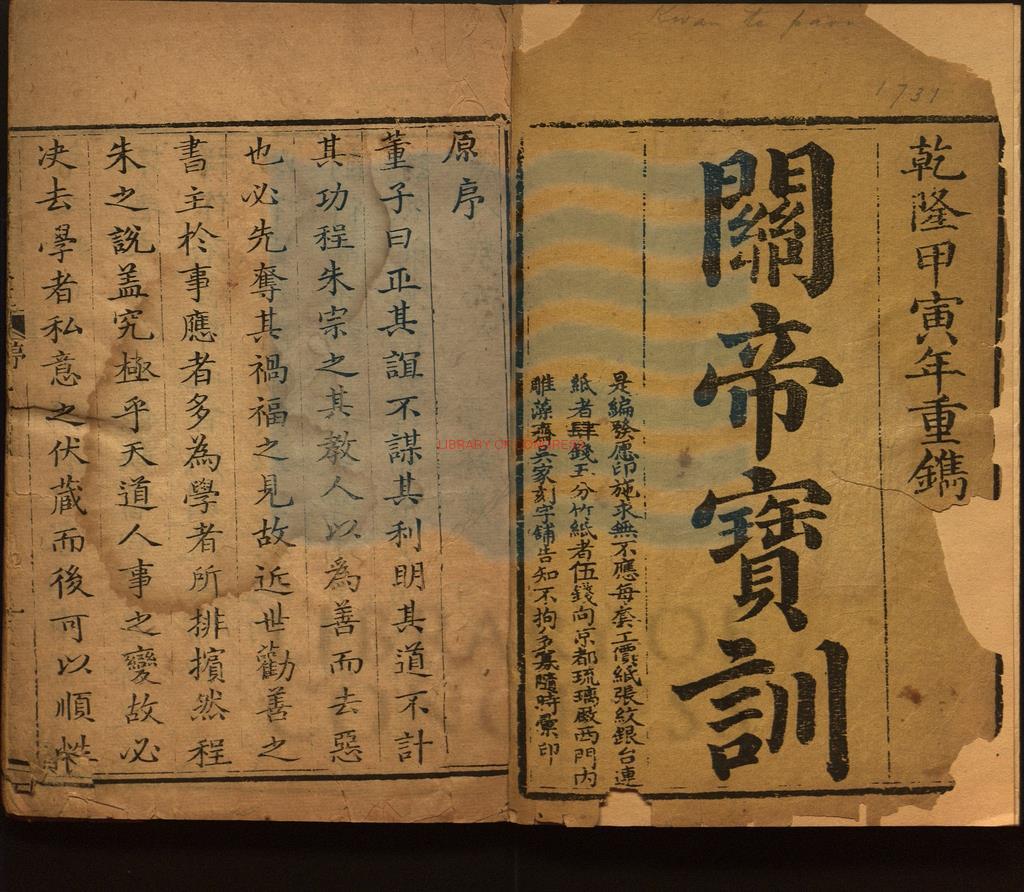 Kwan te paou
1731
乾隆甲寅年重鐫
關帝寶訓
是編發愿印施求無不應每套工價紙張紋銀台連
紙者肆錢五分竹紙者伍錢向京都琉璃厰西門內
雕藻齋吳家刻字鋪告知不拘多寡隨時彙印
LIBRARY OF CONGRESS
原序
董子曰正其誼不謀其利明其道不計
其功程朱宗之其教人以為善而去惡
也必先奪其禍福之見故近世勸善之
書主於事應者多為學者所排擯然程
朱之說盖究極乎天道人事之變故必
决去學者私意之伏藏而後可以順性
序